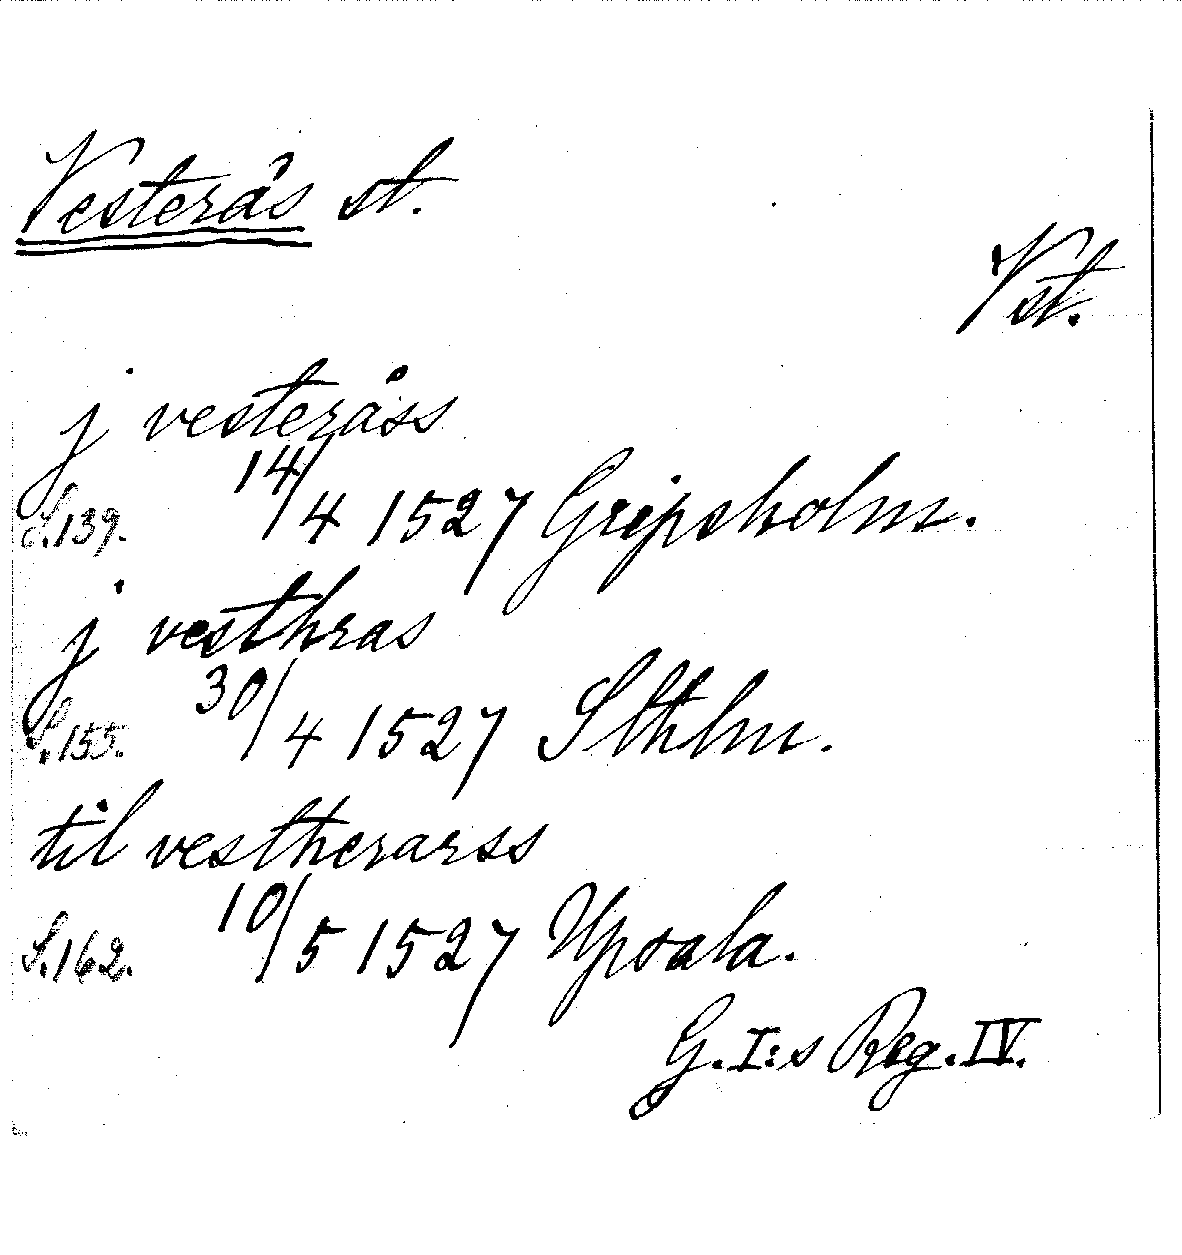 Vesterås st.
Vst.
j vesteråss
S.139. 14/4 1527 Gripsholm.
j vesthras
S.155. 30/4 1527 Sthlm.
til vestherarss
S.162. 10/5 1527 Upsala.
G.I:s Reg. IV.